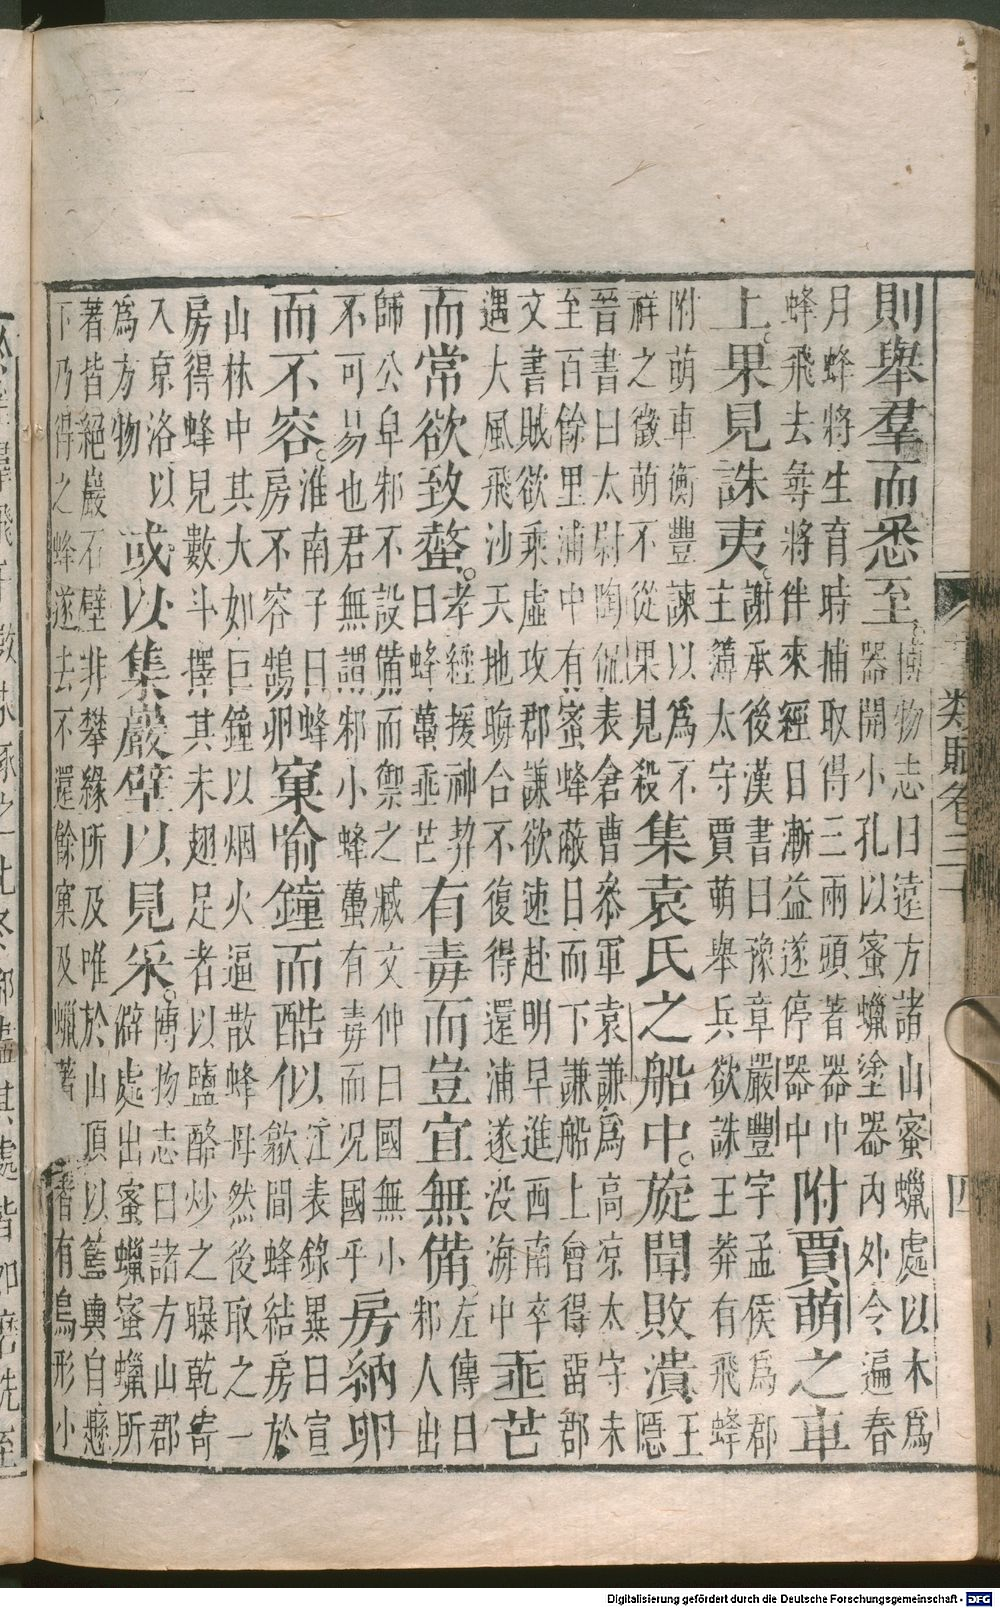 則舉羣而悉至。博物志曰遠方諸山蜜蠟處以木爲
器開小孔以蜜蠟塗器内外令遍春
月蜂將生育時捕取得三兩頭著器中
蜂飛去尋將伴來經日漸益遂停器中附賈萌之車
上。果見誅夷。謝承後漢書曰豫章嚴豐字孟侯爲郡
主簿太守賈萌舉兵欲誅王莽有飛蜂
附萌車衡豐諫以爲不
祥之徵萌不從果見殺集袁氏之船中。旋聞敗潰王
隱
晉書曰太尉陶侃表倉曹叅軍袁謙爲高凉太守未
至百餘里浦中有蜜蜂蔽日而下謙船上會得畱郡
文書賊欲乘虛攻郡謙欲速赴明早進西南卒
遇大風飛沙天地晦合不復得還浦遂没海中乖芒
而常欲致螫。孝經援神契
曰蜂蠆乖芒有毒而豈宜無備左傳曰
邾人出
師公卑邾不設備而禦之臧文仲曰國無小
不可易也君無謂邾小蜂蠆有毒而况國乎房納卵
而不容。淮南子曰蜂
房不容鵠卵窠喻鐘而酷似江表錄異曰宣
歙間蜂結房於
山林中其大如巨鐘以烟火逼散蜂母然後取之一
房得蜂見數斗擇其未翅足者以鹽酪炒之曝乾寄
入京洛以
爲方物或以集巖壁以見采。博物志曰諸方山郡
僻處出蜜蠟蜜蠟所
著皆絕巖石壁非攀緣所及唯於山頂以籃輿自懸
下乃得之蜂遂去不還餘窠及蠟著者有鳥形小
類賦卷三十
四
Digitalisierung gefördert durch die Deutsche Forschungsgemeinschaft - DFG